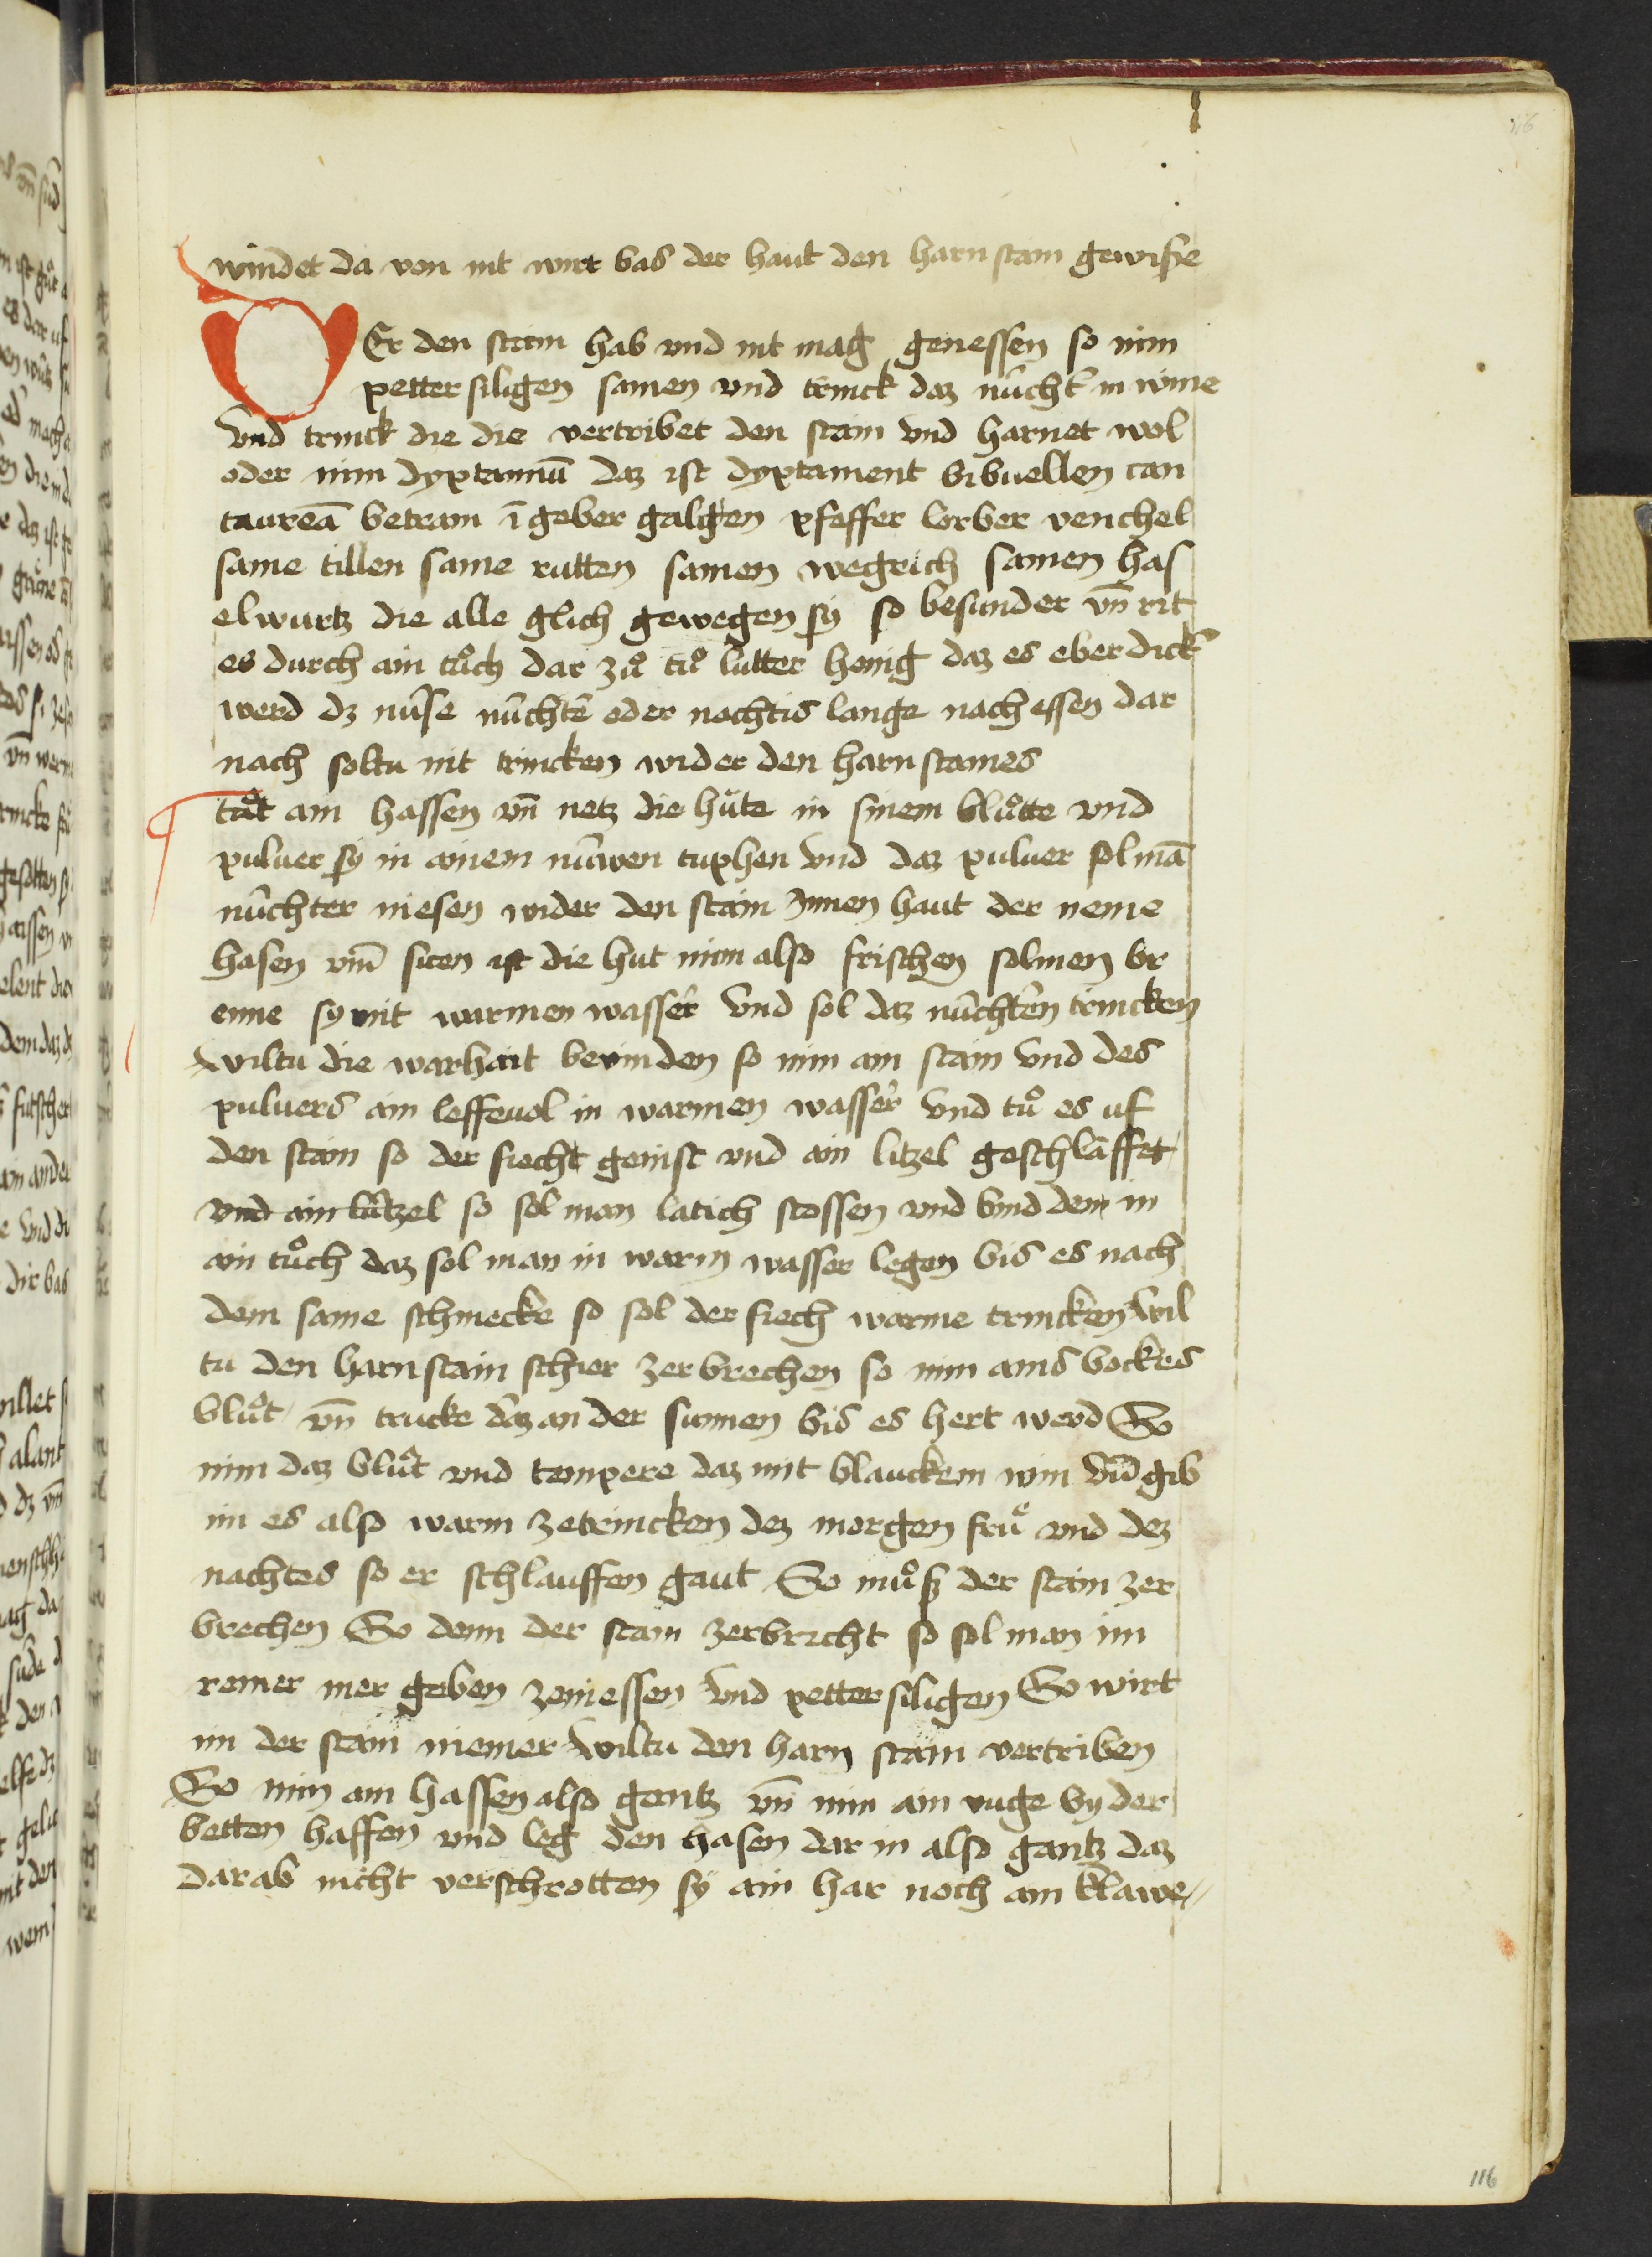 116
windet da von nit wirt bas der haut den harn stain gewisse
WEr den stain hab vnd nit mag genessen so nim
petter siligen samen vnd trinck daz nu̍cht̄ in wine
vnd trinck die die vertribet den stain vnd harnet wol
oder nim dyptamū daz ist dyptament bibnellen can
taureā betram ī geber galgen pfeffer lorber venchel
same tillen same rutten samen wegrich samen has
elwurtz die alle glich gewegen sy so besunder vn̄ rit
es durch ain tu̍ch dar zu̍ tu̍ lutter honig daz es eber dick
werd dz nu̍se nu̍chtē oder nachtis lange nach essen dar
nach soltu nit trincken wider den harn staines
töt ain hassen vn̄ netz die hu̍te in sinem blu̍tte vnd
puluer sy in ainem nu̍wen tuphen vnd daz puluer sol mā
nu̍chter niesen wider den stain Inwen haut der neme
hasen vnn̄ siten ist die hut nim also frischen solmen br
enne sy mit warmen wasser vnd sol daz nu̍chten trincken
wiltu die warhait bevinden so nim ain stain vnd des
puluers ain leffeuol in warmen wasser vnd tu̍ es uf
den stain so der siecht genist vnd ain litzel geschlaffet
vnd ain lu̍tzel so sol man latich stossen vnd bind dem in
ain tu̍ch daz sol man in warm wasser legen bis es nach
dem same schmecke so sol der siech warme trincken wil
tu den harn stain schier zer brechen so nim ains bockes
blu̍t vn̄ trucke daz an der sunnen bis es hert werd So
nim daz blu̍t vnd tempere daz mit blanckem win vn̄ gib
im es also warm zetrincken dez morgen fru̍ vnd dez
nachtes so er schlauffen gaut So mu̍ß der stain zer
brechen So denn der stain zerbricht so sol man im
remer mer geben zeniessen vnd petter siligen So wirt
im der stain niemer wiltu den harn stain vertriben
So nim ain hassen also gantz vn̄ nim ain vuge by der
betten haffen vnd leg den hasen dar in also gantz daz
darab nicht verschrotten sy ain har noch ain klawe
116